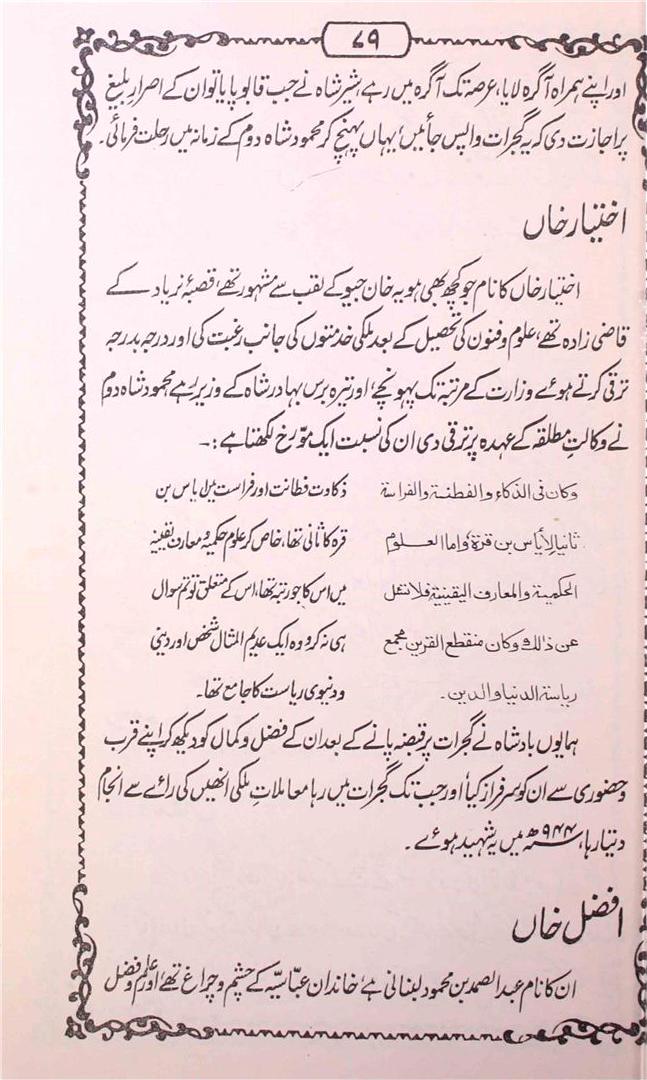 ۷۹
اور اپنے ہمراہ آگرہ لایا، عرصہ تک آگرہ میں رہے، شیر شاہ نے جب قابو پایا تو ان کے اصرارِ بلیغ
پر اجازت دی کہ یہ گجرات واپس جائیں، یہاں پہنچ کر محمود شاہ دوم کے زمانہ میں رحلت فرمائی۔
اختیار خاں
اختیار خاں کا نام جو کچھ بھی ہو یہ خان جیو کے لقب سے مشہور تھے، قصبۂ نریاد کے
قاضی زادہ تھے، علوم و فنون کی تحصیل کے بعد ملکی خدمتوں کی جانب رغبت کی اور درجہ بدرجہ
ترقی کرتے ہوئے وزارت کے مرتبہ تک پہونچے، اور تیرہ برس بہادر شاہ کے وزیر رہے محمود شاہ دوم
نے وکالتِ مطلقہ کے عہدہ پر ترقی دی ان کی نسبت ایک مؤرخ لکھتا ہے :۔
وكان فى الذكاء والفطنة والفراسة ذکاوت فطانت اور فراست میں ایاس بن
ثانيا لأياس بن قرة، واما العلوم قرہ کا ثانی تھا، خاص کر علوم حکمیہ و معارف یقینیہ
الحكمية والمعارف اليقينية فلا تسئل میں اس کا جو رتبہ تھا، اس کے متعلق تو تم سوال
عن ذالك وكان منقطع القرين مجمع ہی نہ کرو وہ ایک عدیم المثال شخص اور دینی
رياسة الدنيا والدين۔ و دنیوی ریاست کا جامع تھا۔
ہمایوں بادشاہ نے گجرات پر قبضہ پانے کے بعد ان کے فضل و کمال کو دیکھ کر اپنے قرب
و حضوری سے ان کو سرفراز کیا، اور جب تک گجرات میں رہا معاملاتِ ملکی انھیں کی رائے سے انجام
دیتا رہا، ۹۴۴ھ میں یہ شہید ہوئے۔
افضل خاں
ان کا نام عبد الصمد بن محمود لبنانی ہے، خاندان عباسیہ کے چشم و چراغ تھے، اور علم و فضل